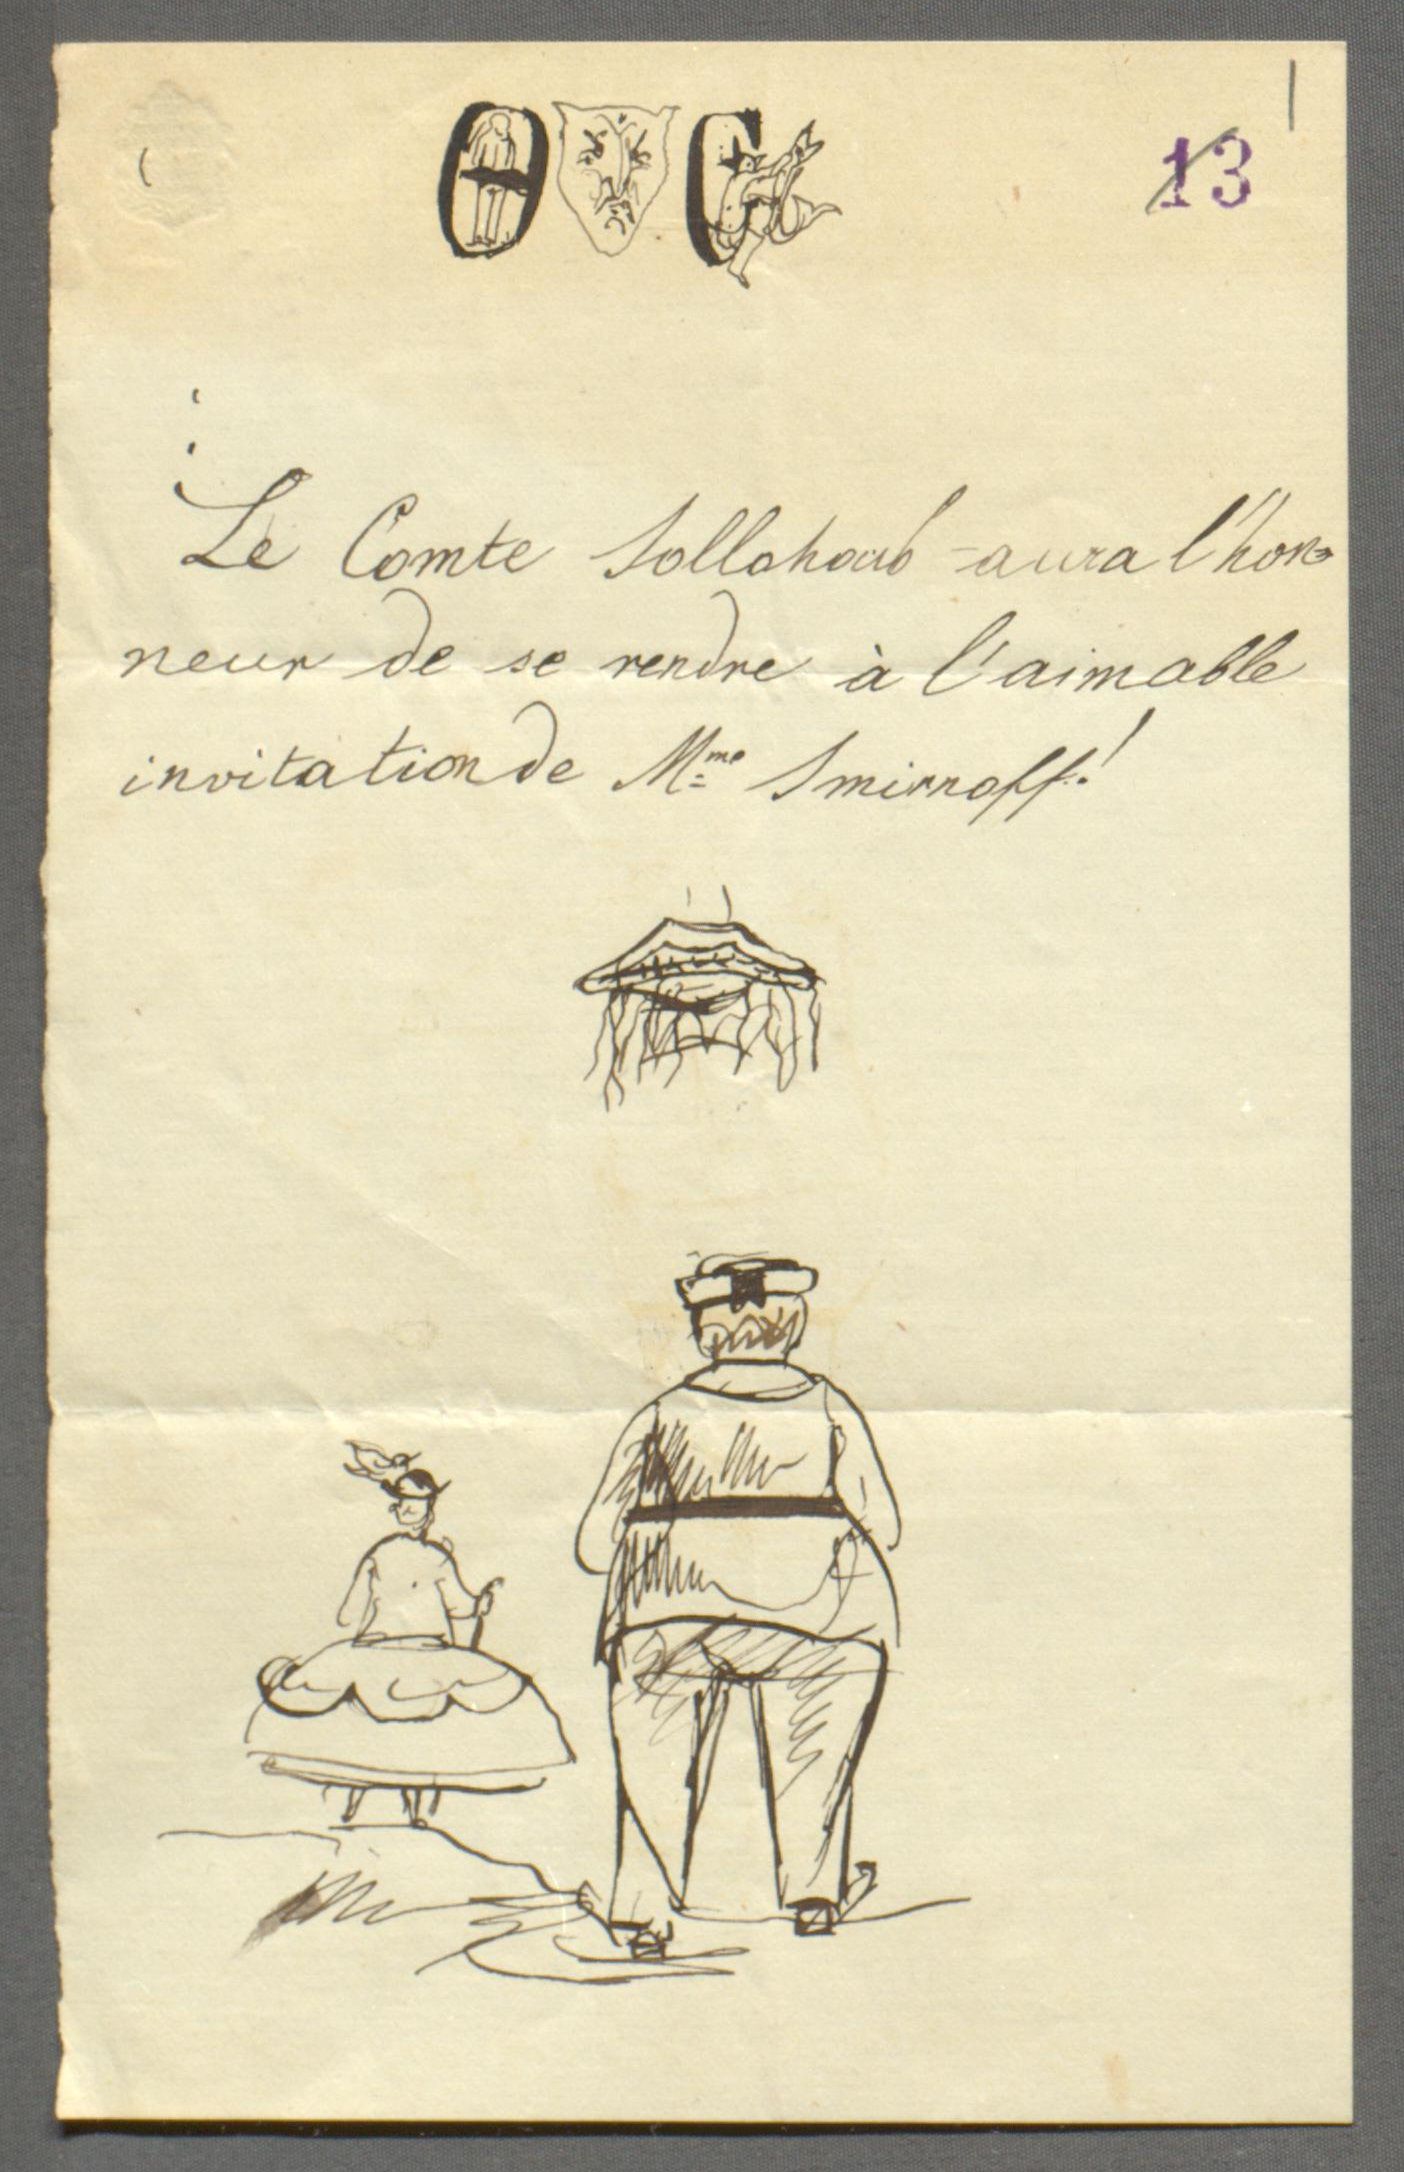 Ѳ C
13
Le Comte Sollohoub - aura l'hon-
neur de se rendre à l'aimable
invitation de Mme Smirnoff!